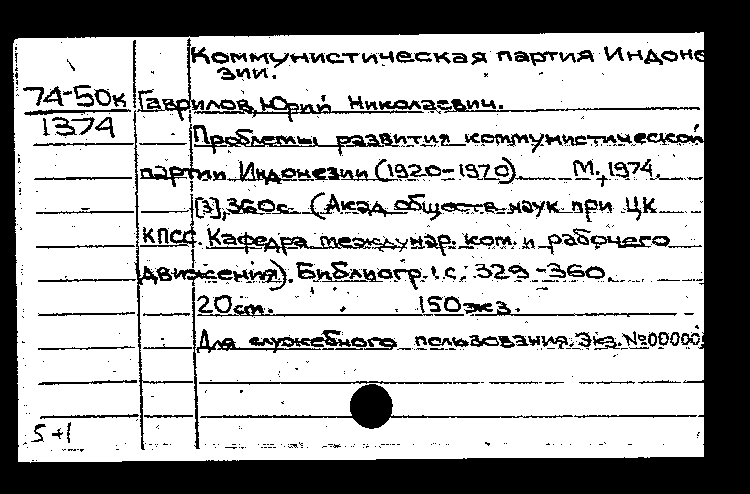 Коммунистическая партия Индоне
зии.
74-50к
1374
Гаврилов, Юрий Николаевич.
Проблемы развития коммунистической
партии Индонезии (1920-1970). М., 1974.
[3], 360с. (Акад обществ. наук при ЦК
КПСС. Кафедра междунар. ком. и рабочего
движения). Библиогр.: с. 329-360.
20см. 150экз.
Для служебного пользования. Экз. №00000
5+1